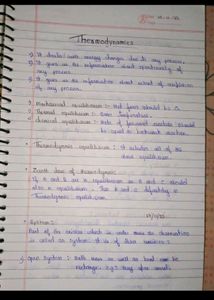 Thermodynamics
It deals with energy changes due to any process.
It gives us the information about spontaneity of
any process.
It gives us the information about extent of completion
of any process.
Mechanical equilibrium :- Net force should be 0.
Thermal equilibrium :- Same Temperature.
chemical equilibrium :- Rate of forward reaction should
be equal to backward reaction.
Thermodynamic equilibrium :- It satisfies all of the
above equilibrium.
Zeroth law of thermodynamics
If A and B are in equilibrium and B and C should
also in equilibrium. Then A and C definitely in
Thermodynamic equilibrium.
System :-
Part of the universe which is under observation
is called as system. It is of three various :-
Open System :- Both mass as well as heat can be
exchanged. e.g.